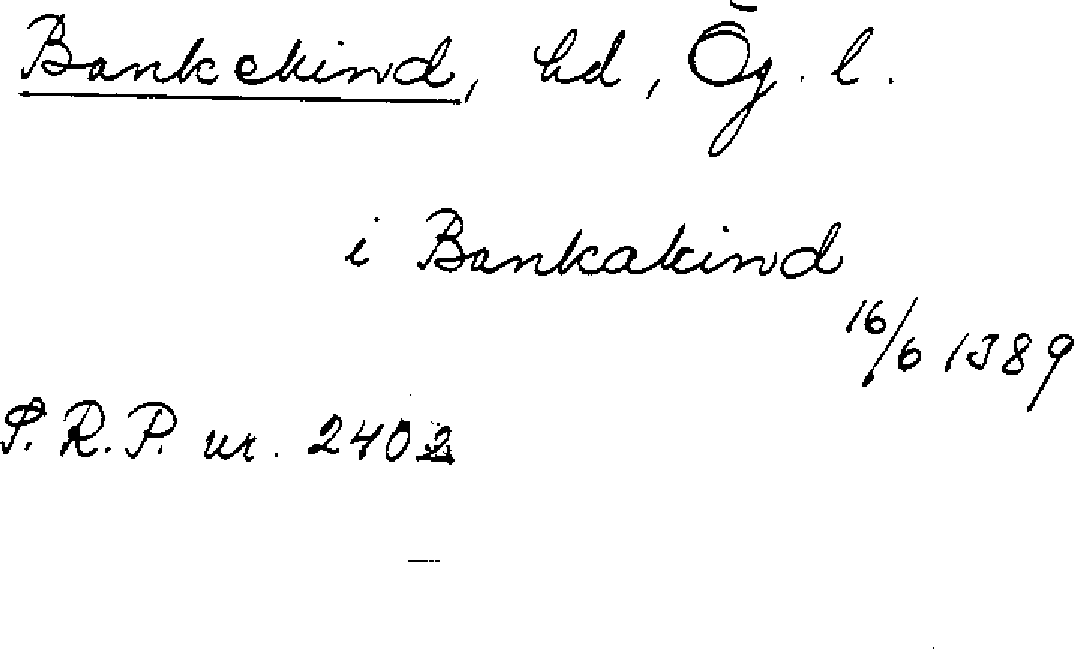 Bankekind, hd, Ög. l.
i Bankakind
16/6 1389
S. R. P. nr. 2402